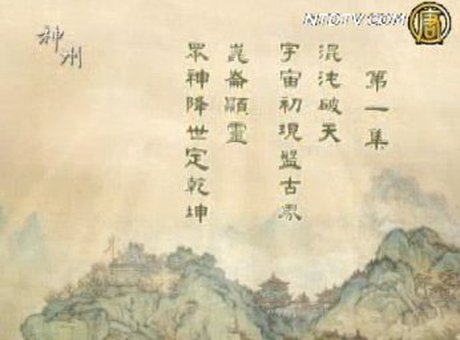 神州
NTDTV.COM
唐
第一集
混沌破天
宇宙初現盤古界
崑崙顯靈
眾神降世定乾坤